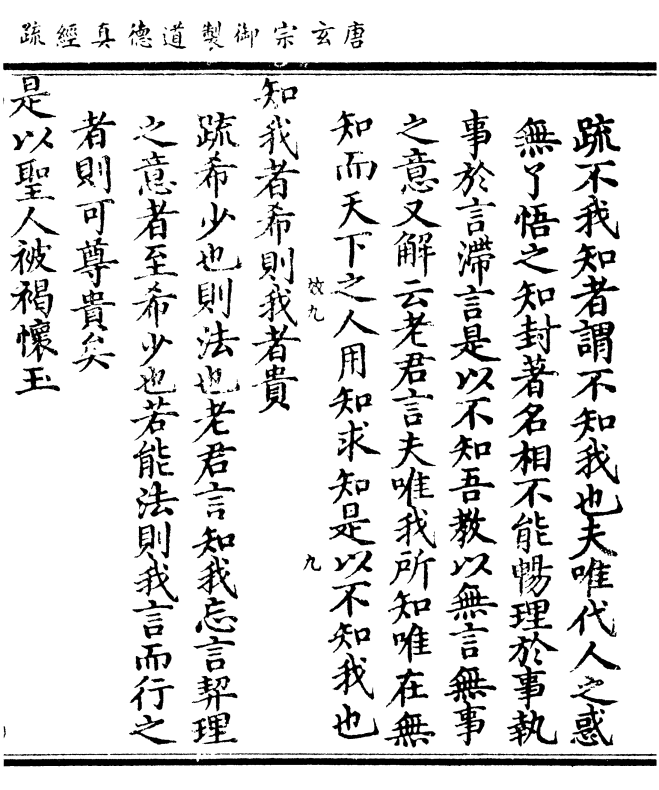 唐玄宗御製道德真經疏
疏不我知者謂不知我也夫唯代人之惑
無了悟之知封著名相不能暢理於事執
事於言滯言是以不知吾教以無言無事
之意又解云老君言夫唯我所知唯在無
知而天下之人用知求知是以不知我也
效九 九
知我者希則我者貴
疏希少也則法也老君言知我忘言契理
之意者至希少也若能法則我言而行之
者則可尊貴矣
是以聖人被褐懷玉